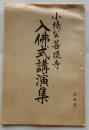 小楠公菩提寺
入佛式講演集